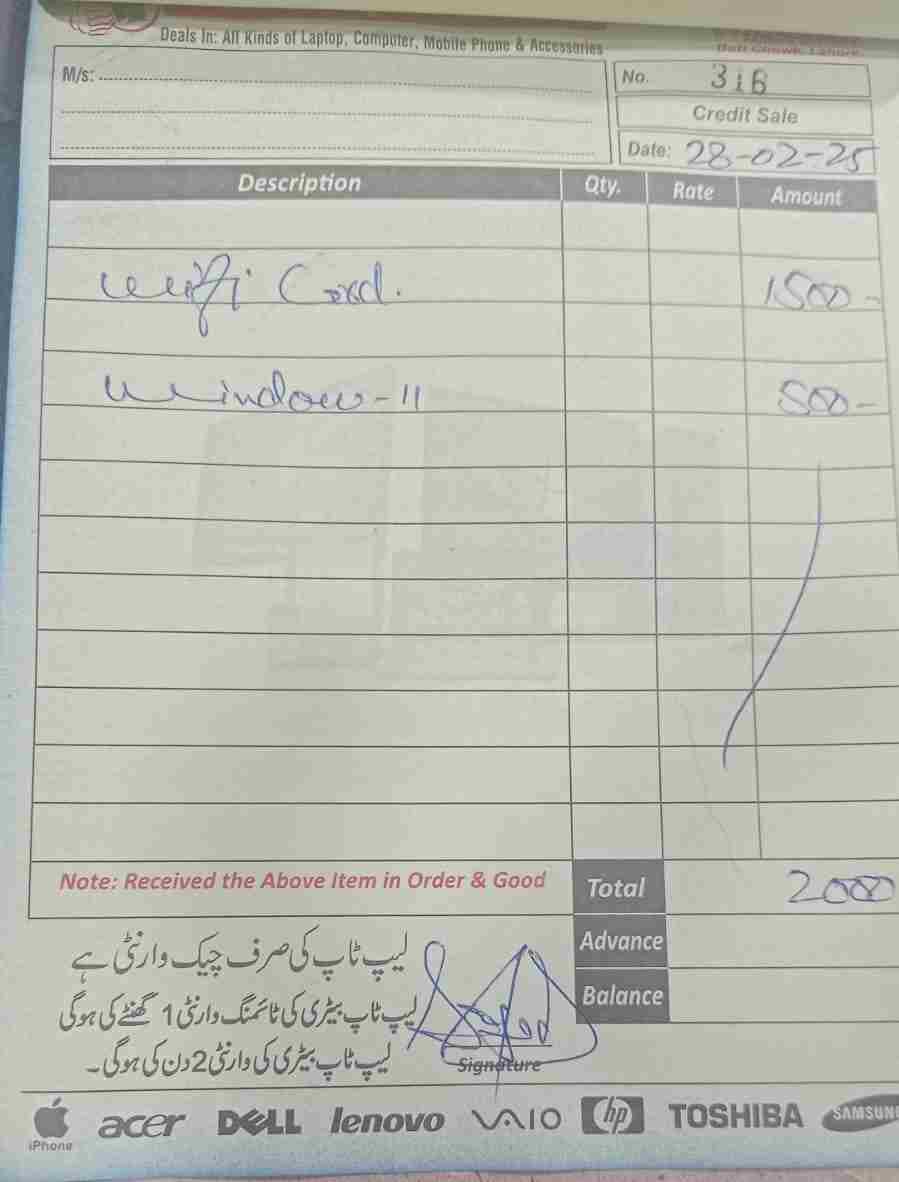 Deals In: All Kinds of Laptop, Computer, Mobile Phone & Accessories
Butt Chowk, Lahore.
M/s:
No. 31B
Credit Sale
Date: 28-02-25
Description Qty. Rate Amount
Wifi Card. 1500-
Window-11 500-
Note: Received the Above Item in Order & Good Total 2000
Advance
Balance
لیپ ٹاپ کی صرف چیک وارنٹی ہے
لیپ ٹاپ بیٹری کی ٹائمنگ وارنٹی 1 گھنٹے کی ہوگی
لیپ ٹاپ بیٹری کی وارنٹی 2 دن کی ہوگی۔
Signature
iPhone acer DELL lenovo VAIO hp TOSHIBA SAMSUNG